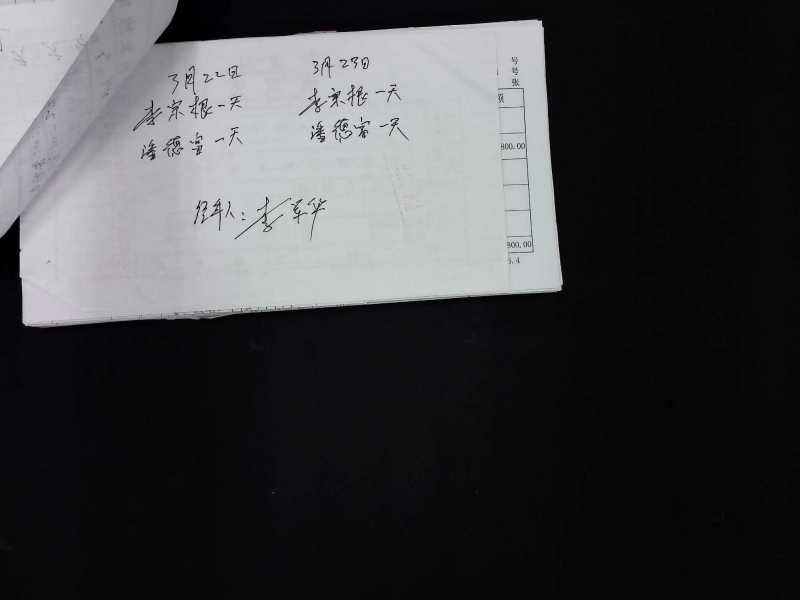 3月22日 3月23日
李宗根一天 李宗根一天
潘德富一天 潘德富一天
经手人：李军华
号
号
张
额
800.00
800.00